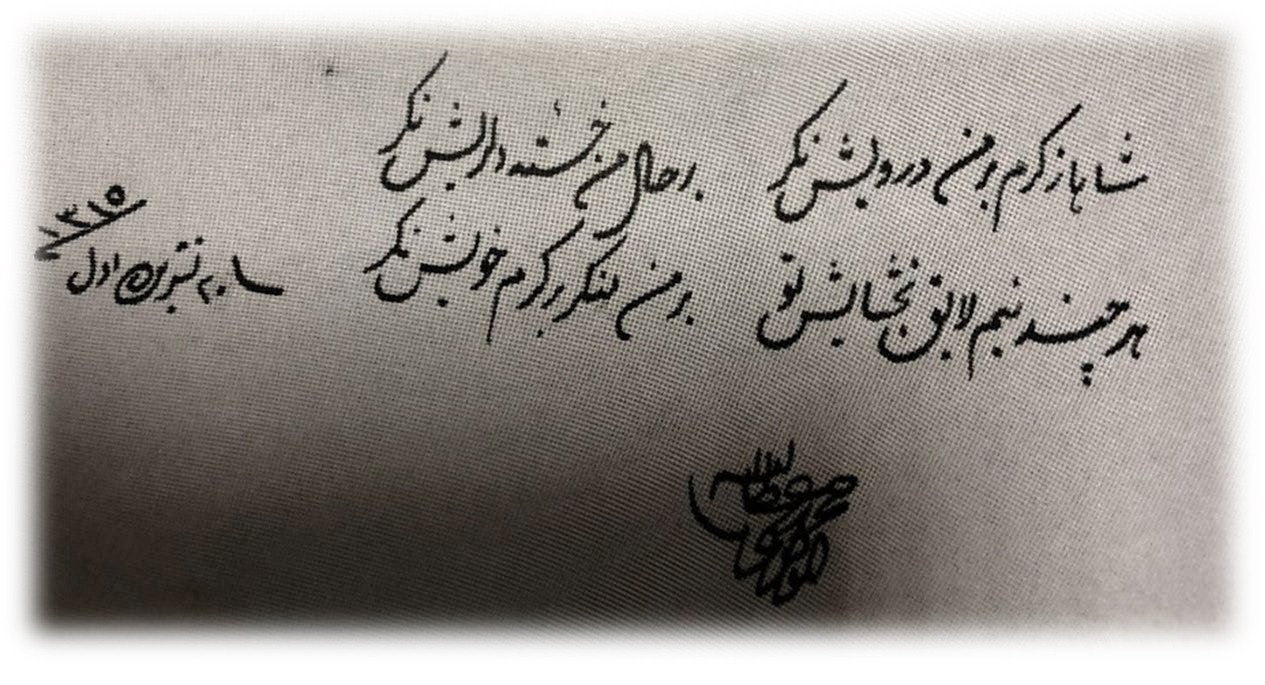 شاها ز کرم بر من درویش نگر بر حال من خسته دلریش نگر
هر چند نیم لایق بخشایش تو بر من منگر بر کرم خویش نگر
٢٠ تشرین اول ١٣١٥